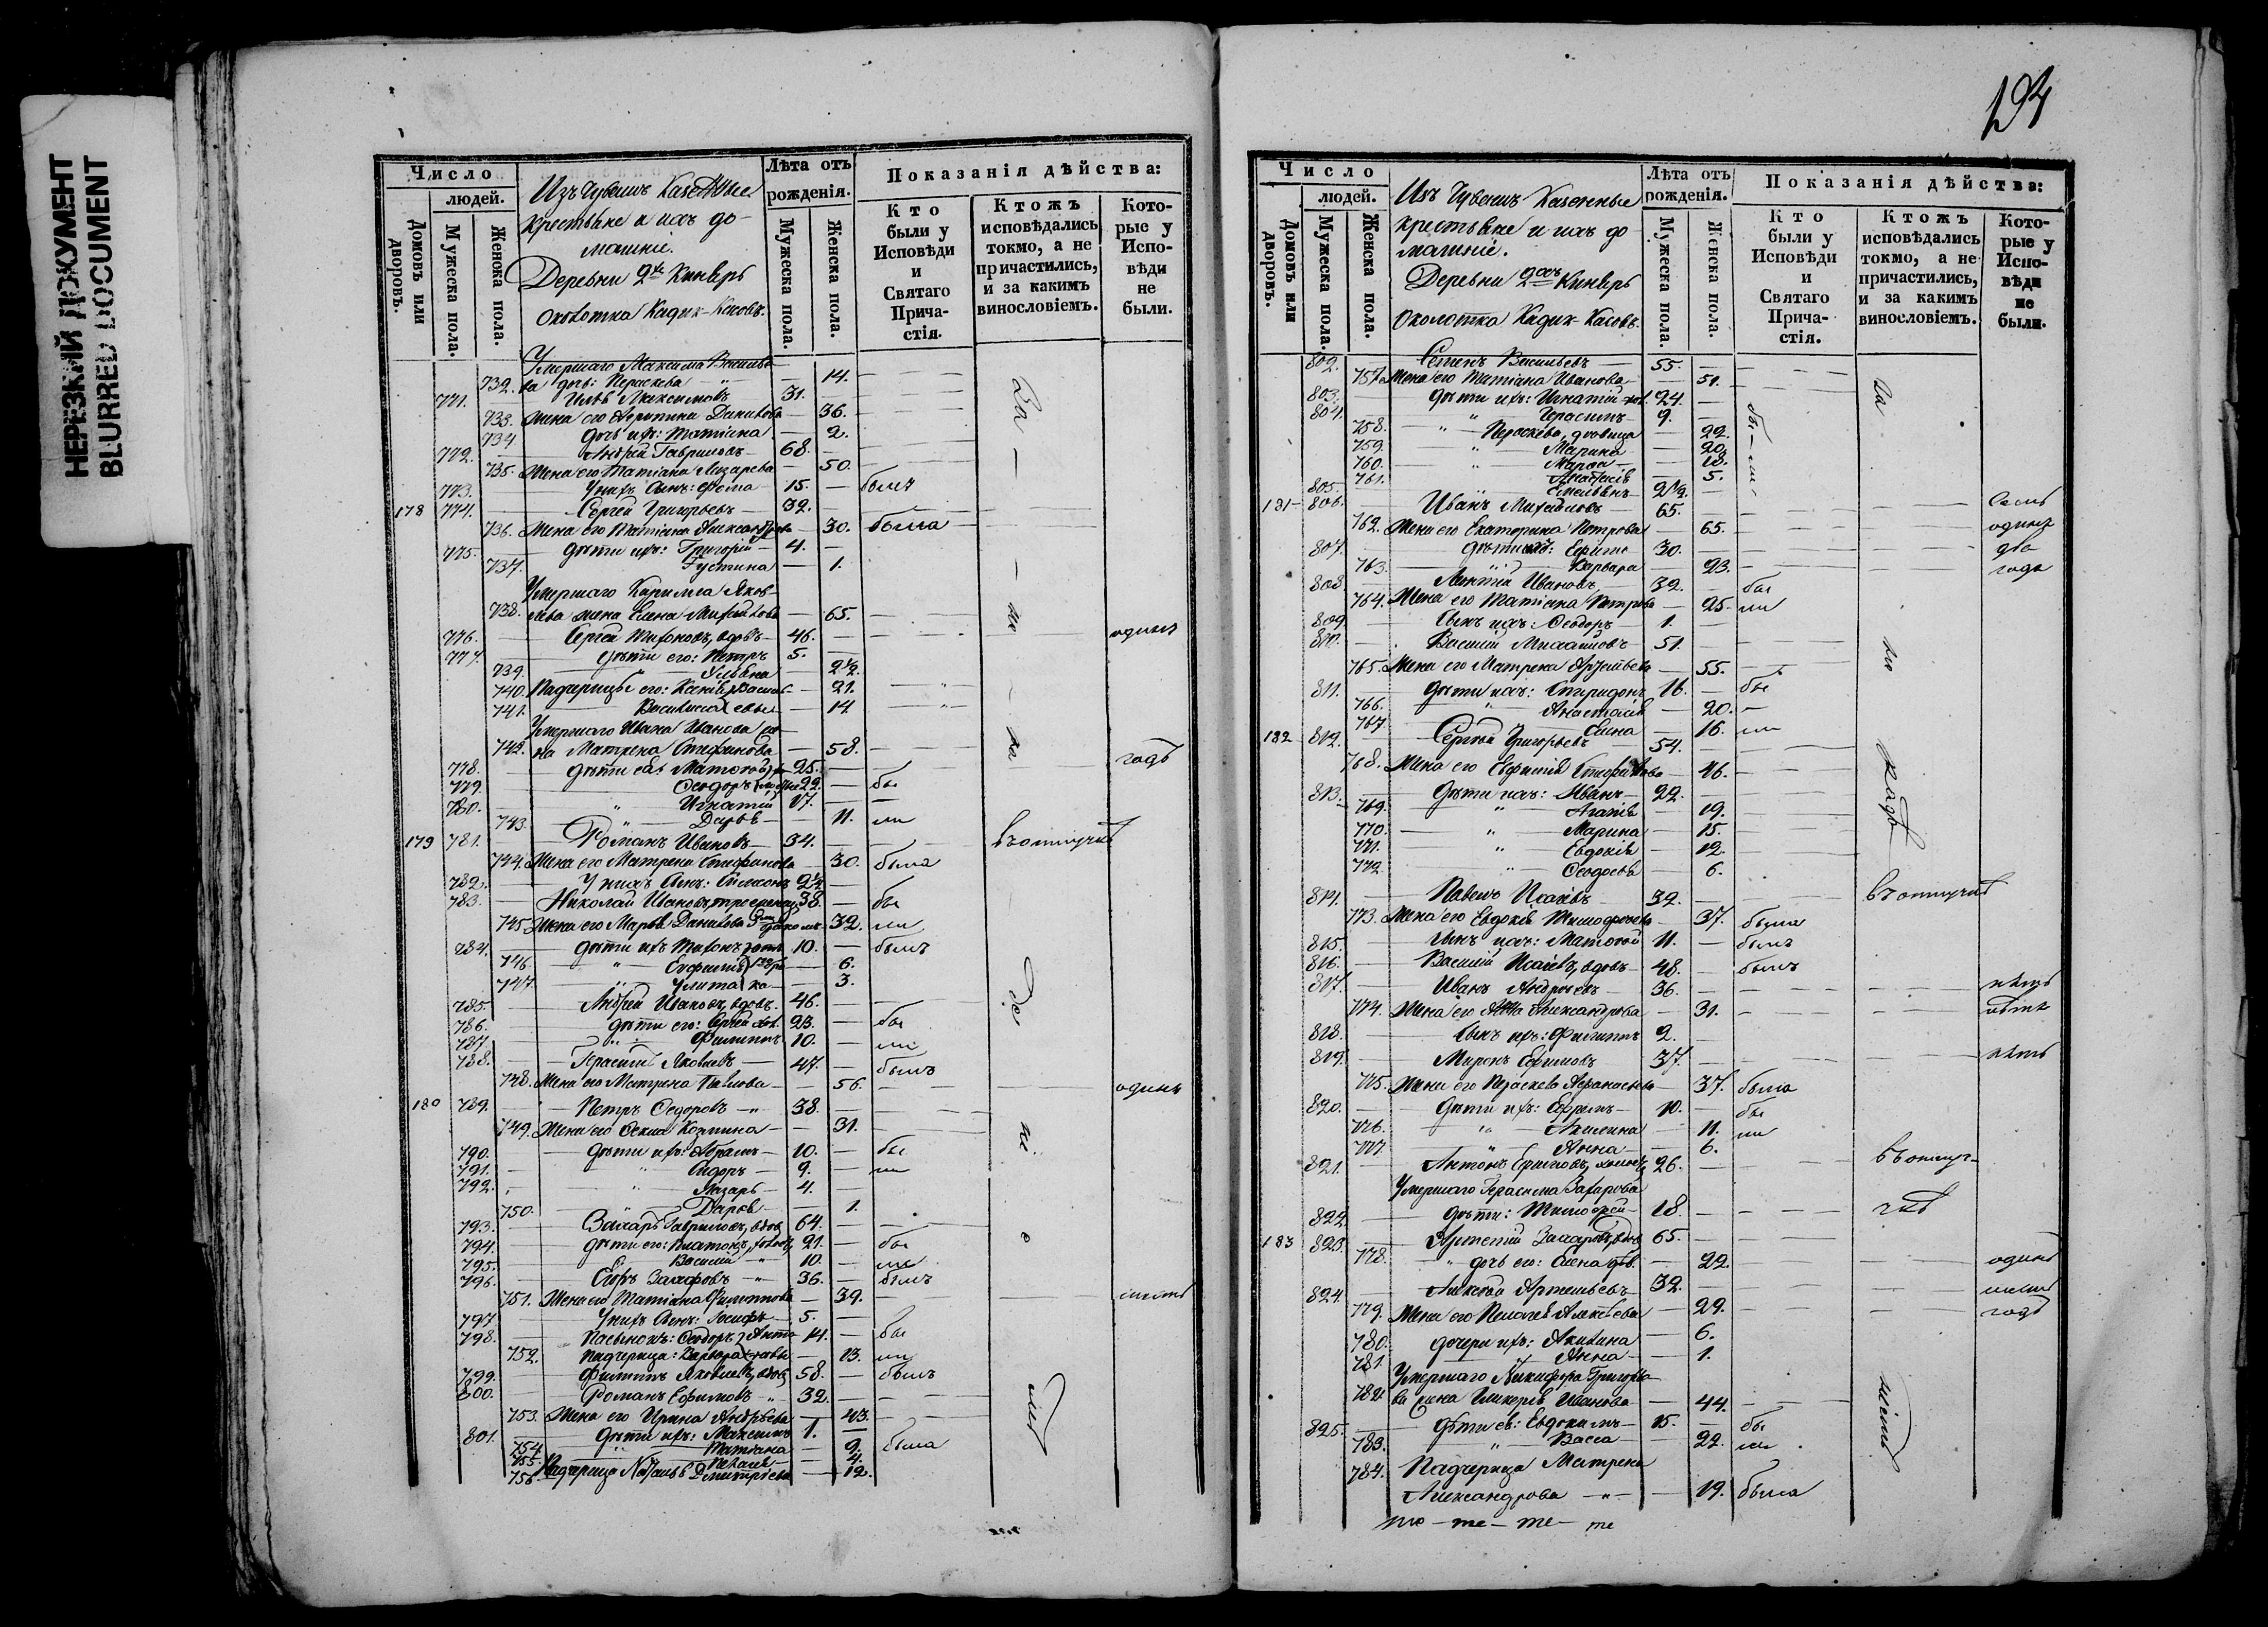 НЕРЕЗКИЙ ДОКУМЕНТ
BLURRED DOCUMENT
Число
людей.
Домовъ или дворовъ.
Мужеска пола.
Женска пола.
Изъ Чувашъ Казенные
крестьяне и ихъ до-
машніе.
Деревни 2хъ Кинеръ
околотка Кадик-Касовъ.
Лѣта отъ рожденія.
Мужеска пола.
Женска пола.
Показанія дѣйства:
Кто были у Исповѣди и Святаго Прича-стія.
Ктожъ исповѣдались токмо, а не причастились, и за какимъ винословіемъ.
Кото-рые у Испо-вѣди не были.
Умершаго Максима Василье-
732. ва дочь: Параскева — 14.
771. Илья Максимовъ 31.
733. Жена его Агрипина Данилова — 36.
734 дочь ихъ: Татіана — 2.
772. Андрей Гавриловъ — 68.
735. Жена его Татіана Лазарева — 50.
773. У нихъ сынъ: Ѳома — 15. — былъ
178 774. Сергей Григорьевъ — 32.
736. Жена его Татіана Александрова — 30. была
775. дѣти ихъ: Григорій — 4.
737. Густина — 1.
Умершаго Кирилла Яков-
738. лева жена Елена Михайлова — 65.
776. Сергей Тихоновъ, вдовъ — 46. — одинъ
777. дѣти его: Петръ 5.
739. Ульяна — 2½.
740. Падчерицы его: — 21.
741. Василиса — 14
Умершаго Ивана Иванова же-
742. на Матрена Стефанова — 58. — годъ
778. дѣти ея: Матѳей 25.
779. Ѳеодоръ 22. — бы
780. Игнатій 17.
743. Дарья — 11. ли
179 781. Романъ Ивановъ — 34. — въ отлучкѣ
744. Жена его Матрена Стефанова — 30. была
782. У нихъ сынъ: Симеонъ 2½
783. Николай Ивановъ 38. — бы
745. Жена его Марья Данилова — 32. ли
784. дѣти ихъ Тихонъ 10. — былъ
746. Евфимія — 6.
747. Улита — 3.
785. Андрей Ивановъ, вдовъ. 46.
786. дѣти его: Сергей 23. — бы
787. Филиппъ 10. — ли
788. Герасимъ Яковлевъ — 47. — былъ
748. Жена его Матрена Павлова — 56. — одинъ
180 789. Петръ Ѳедоровъ — 38.
749. Жена его Ѳекла Козмина — 31.
790. дѣти ихъ: Абрамъ — 10. — бы
791. Сидоръ — 9. — ли
792. Лазарь — 4.
750. Дарья — 1.
793. Захаръ Гавриловъ, вдов. 64.
794. дѣти его: Платонъ, 21. — бы
795. Василій 10. — ли
796. Егоръ Захаровъ 36. — былъ
751. Жена его Татіана Филиппова — 39.
797 У нихъ сынъ: Іосифъ 5.
798. Пасынокъ: Ѳеодоръ 14. — бы
752. Падчерица: Варвара — 13. ли
799. Филиппъ Яковлевъ, вдов. 58. — былъ
800. Романъ Ефимовъ 32.
753. Жена его Ирина Андреева — 43.
801. дѣти ихъ: Максимъ 1.
754. Татіана — 9. была
755. Пелагія — 4.
756 Падчерица Наталья Дмитріева — 12.
194
Число
людей.
Домовъ или дворовъ.
Мужеска пола.
Женска пола.
Изъ Чувашъ Казенные
крестьяне и ихъ до
машніе.
Деревни 2хъ Кинеръ
Околотка Кадик-Касовъ.
Лѣта отъ рожденія.
Мужеска пола.
Женска пола.
Показанія дѣйства:
Кто были у Исповѣди и Святаго Прича-стія.
Ктожъ исповѣдались токмо, а не причастились, и за какимъ винословіемъ.
Кото-рые у Испо-вѣди не были.
802. Степанъ Васильевъ — 55.
757. Жена его Татіана Иванова — 51.
803. дѣти ихъ: Игнатій 24.
804. Герасимъ 9.
758. Параскева, дѣвица — 22.
759. Марина — 20.
760. Марѳа — 18.
761. Анастасія — 5.
805. Емельянъ 2½.
181 806. Иванъ Михайловъ 65.
762. Жена его Екатерина Петрова — 65. — одинъ
807. дѣти ихъ: Ефимъ 30. — два
763. Варвара — 23. — года
808. Иванов 32. — бы
764. Жена его Татіана Петрова — 25. ли
809. сынъ ихъ: Ѳеодоръ 1.
810. Василій Михайловъ 51.
765. Жена его Матрена — 55.
811. дѣти ихъ: Спиридонъ 16. — бы
766. Анастасія — 20.
767 Елена — 16. ли
182 812. Сергей Григорьевъ — 54.
768. Жена его Евфимія Стефанова — 46.
813. дѣти ихъ: Иванъ 22.
769. Агапія — 19.
770. Марина — 15.
771. Евдокія — 12.
772 Ѳеодосья — 6.
814. Павелъ Исаевъ 32. — въ отлучкѣ
773. Жена его Евдокія Тимоѳеева — 37. была
815. сынъ ихъ: Матѳей 11. — былъ
816. Василій Исаевъ, вдовъ — 48. — былъ
817. Иванъ Андреевъ — 36. — пять
774. Жена его Анна Александрова — 31. — лѣтъ
818. сынъ ихъ: Филиппъ 2.
819. Миронъ Ефимовъ 37. — пять
775. Жена его Параскева Аѳанасьева — 37. была
820. дѣти ихъ: Ефремъ 10. — бы
776. Акилина — 11. ли
777. Анна — 6.
821. Антонъ Ефимовъ, 26. — въ отлуч-
Умершаго Герасима Захарова
822. дѣти: Тимоѳей 18. — кѣ
183 823. Артемій Захаровъ, вдов 65.
778. дочь его: Елена — 22. — одинъ
824. Алексей Артемьевъ 32.
779. Жена его Пелагія Алексеева — 29. — годъ
780. дочери ихъ: Акилина — 6.
781. Анна — 1.
Умершаго Никифора Григорье-
782. ва жена Гликерія Иванова — 44.
825. дѣти ея: Евдокимъ 15. — бы
783. Васса — 22. ли
784. Падчерица Матрена
Александрова — 19. была